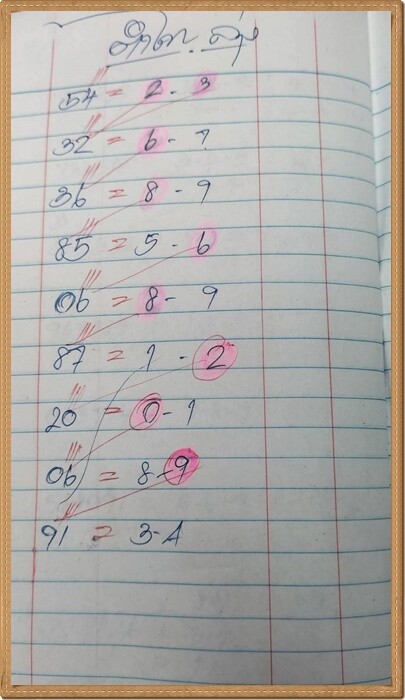 54 = 2 - 3
32 = 6 - 7
36 = 8 - 9
85 = 5 - 6
06 = 8 - 9
87 = 1 - 2
20 = 0 - 1
06 = 8 - 9
91 = 3 - 4